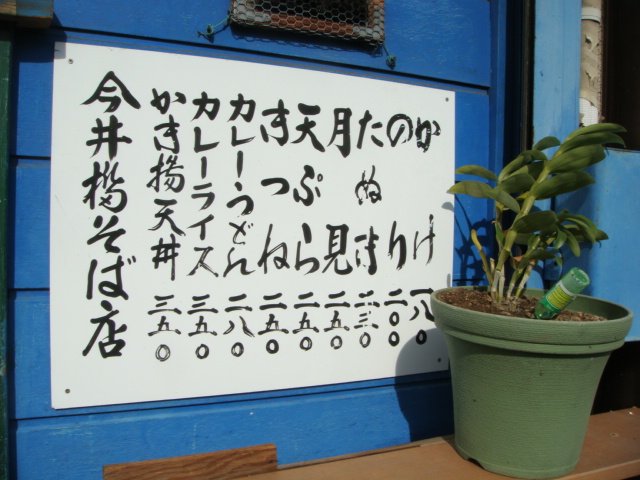 かけ 一八〇
のり 二〇〇
たぬき 二三〇
月見 二五〇
天ぷら 二五〇
きつね 二五〇
カレーうどん 二八〇
カレーライス 三五〇
かき揚天丼 三五〇
今井橋そば店